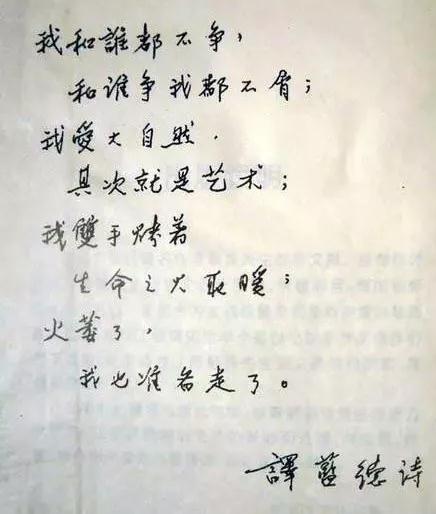 我和誰都不争，
和谁争我都不屑；
我愛大自然．
其次就是艺术；
我雙手烤着
生命之火取暖；
火萎了，
我也准备走了。
譯蓝德诗